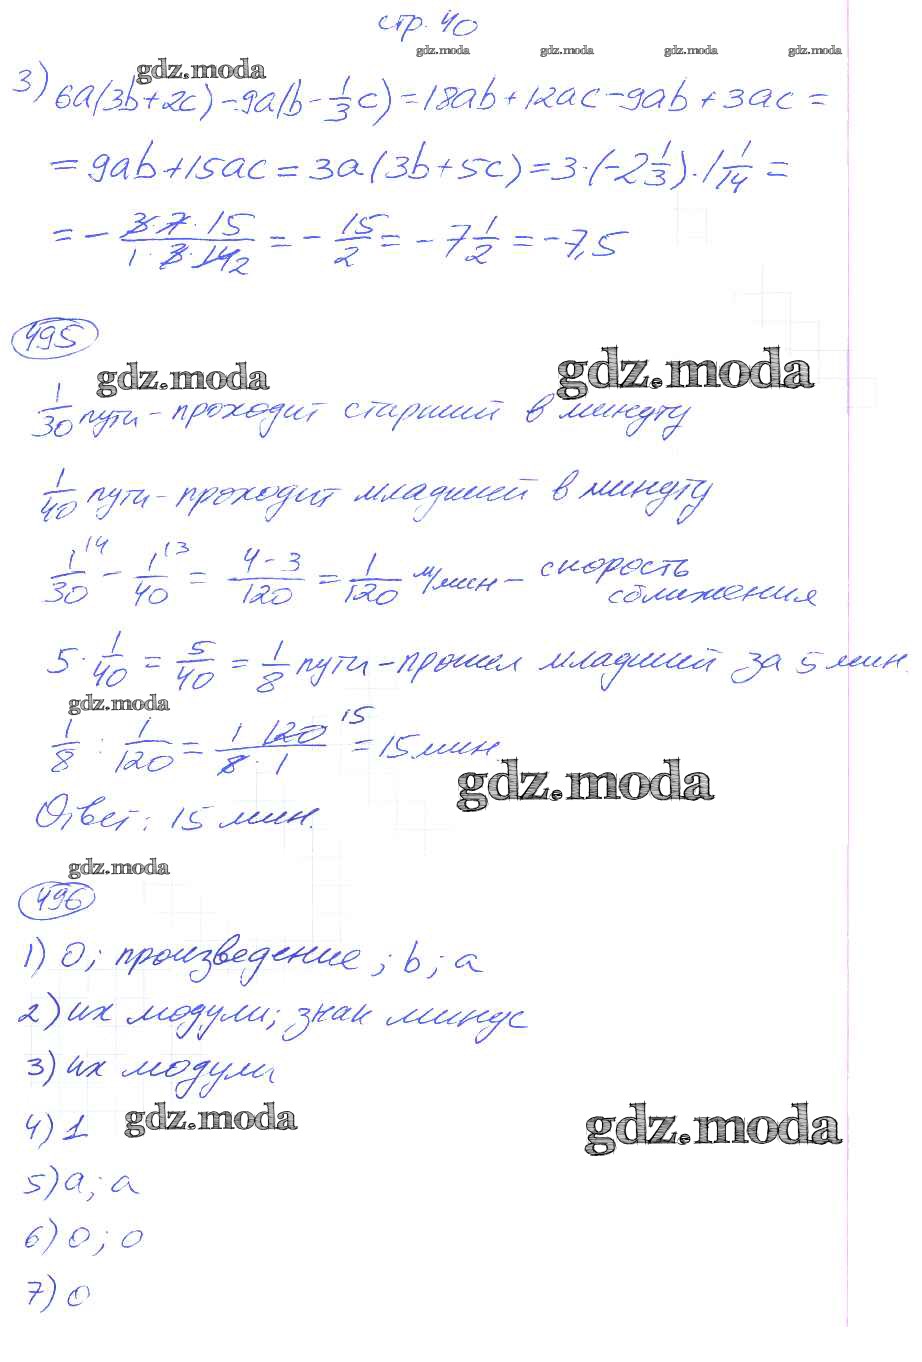 стр. 40
gdz.moda gdz.moda gdz.moda gdz.moda
gdz.moda
3) 6a(3b+2c)-9a(b-1/3c)=18ab+12ac-9ab+3ac=
=9ab+15ac=3a(3b+5c)=3·(-2 1/3)·1 1/14=
=-3·7·15/1·3·14 2=-15/2=-7 1/2=-7,5
495
gdz.moda gdz.moda
1/30 пути-проходит старший в минуту
1/40 пути-проходит младший в минуту
1/30 \4 - 1/40 \3 = 4-3/120 = 1/120 м/мин - скорость
сближения
5·1/40=5/40=1/8 пути-прошел младший за 5 мин.
gdz.moda
1/8 : 1/120 = 1 120 15/8·1 = 15 мин
gdz.moda
Ответ: 15 мин.
gdz.moda
496
1) 0; произведение; b; a
2) их модули; знак минус
3) их модули
gdz.moda gdz.moda
4) 1
5) a; a
6) 0; 0
7) 0